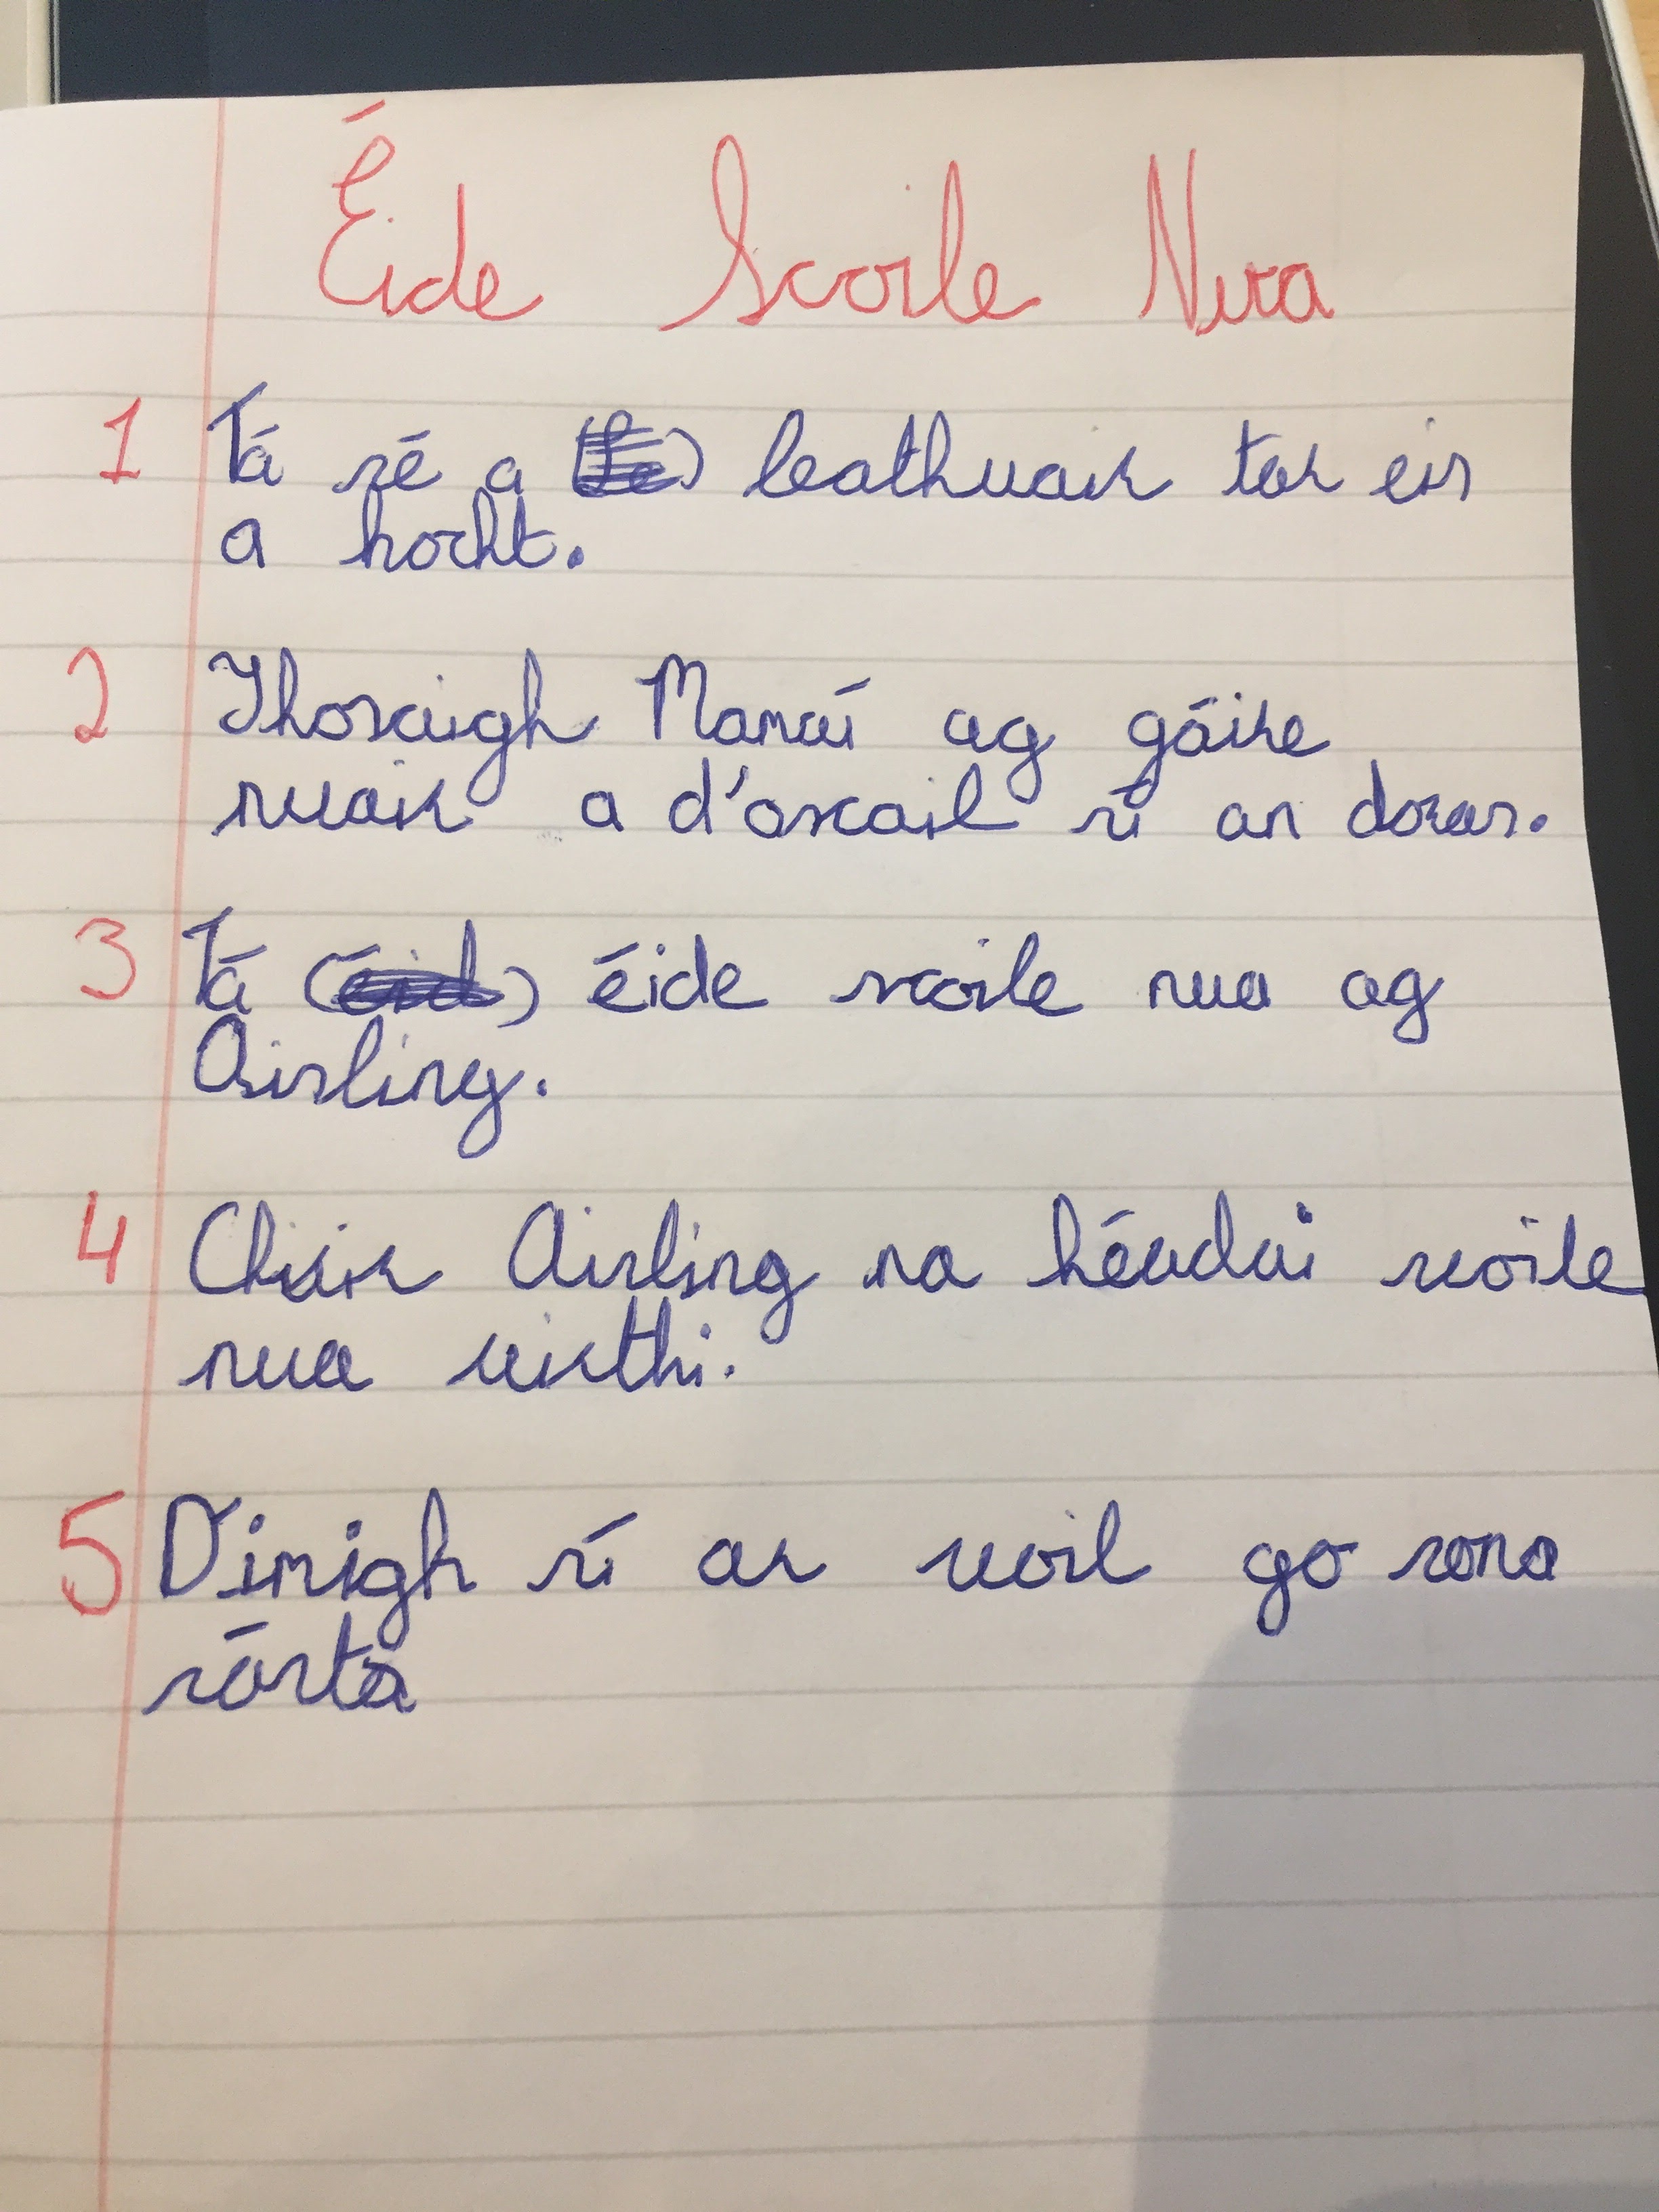 Éide Scoile Nua
1 Tá sé a leathuair tar eis
a hocht.
2 Thosaigh Mamaí ag gáire
nuair a d'oscail sí an doras.
3 Tá (éid) éide scoile nua ag
Aisling.
4 Chuir Aisling na héadaí scoile
nua uirthi.
5 D'imigh sí ar scoil go sona
sásta